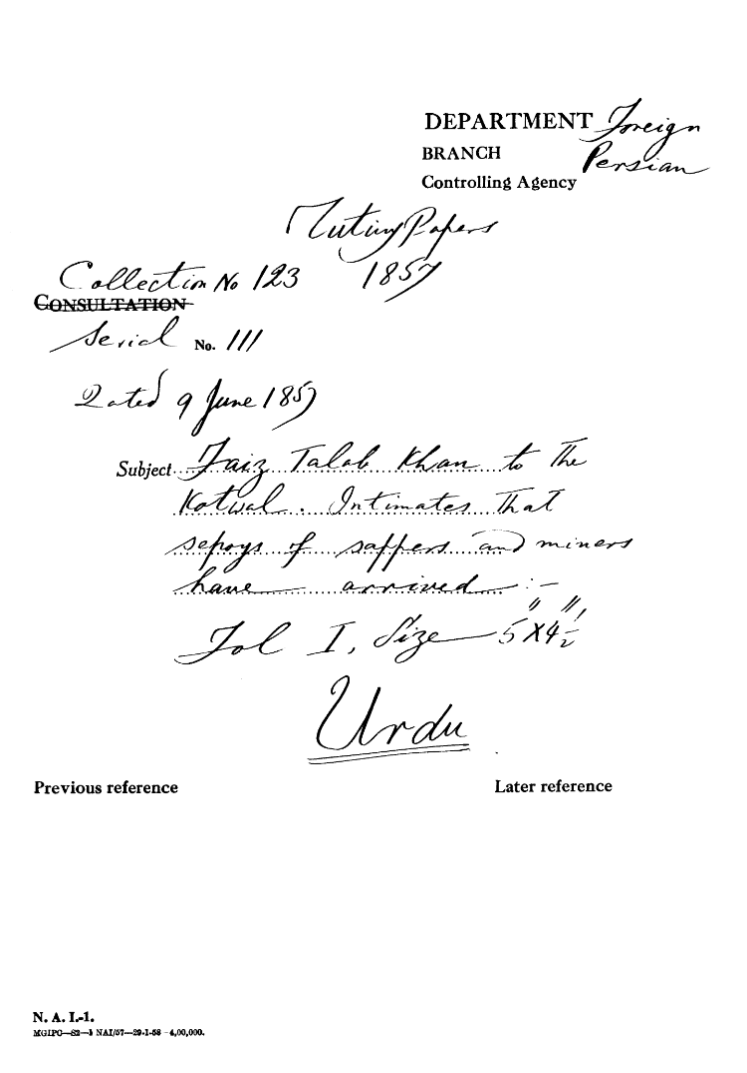 DEPARTMENT Foreign
BRANCH Persian
Controlling Agency
Mutiny Papers
Collection No 123 1857
CONSULTATION
Serial No. 111
Dated 9 June 1857
Subject Faiz Talab Khan to the
Kotwal. Intimates that
sepoys of sappers and miners
have arrived :-
Fol I, Size 5" X 4½"
Urdu
Previous reference Later reference
N. A. I.-1.
MGIPC—S2—1 NAI/57—29-1-58—4,00,000.